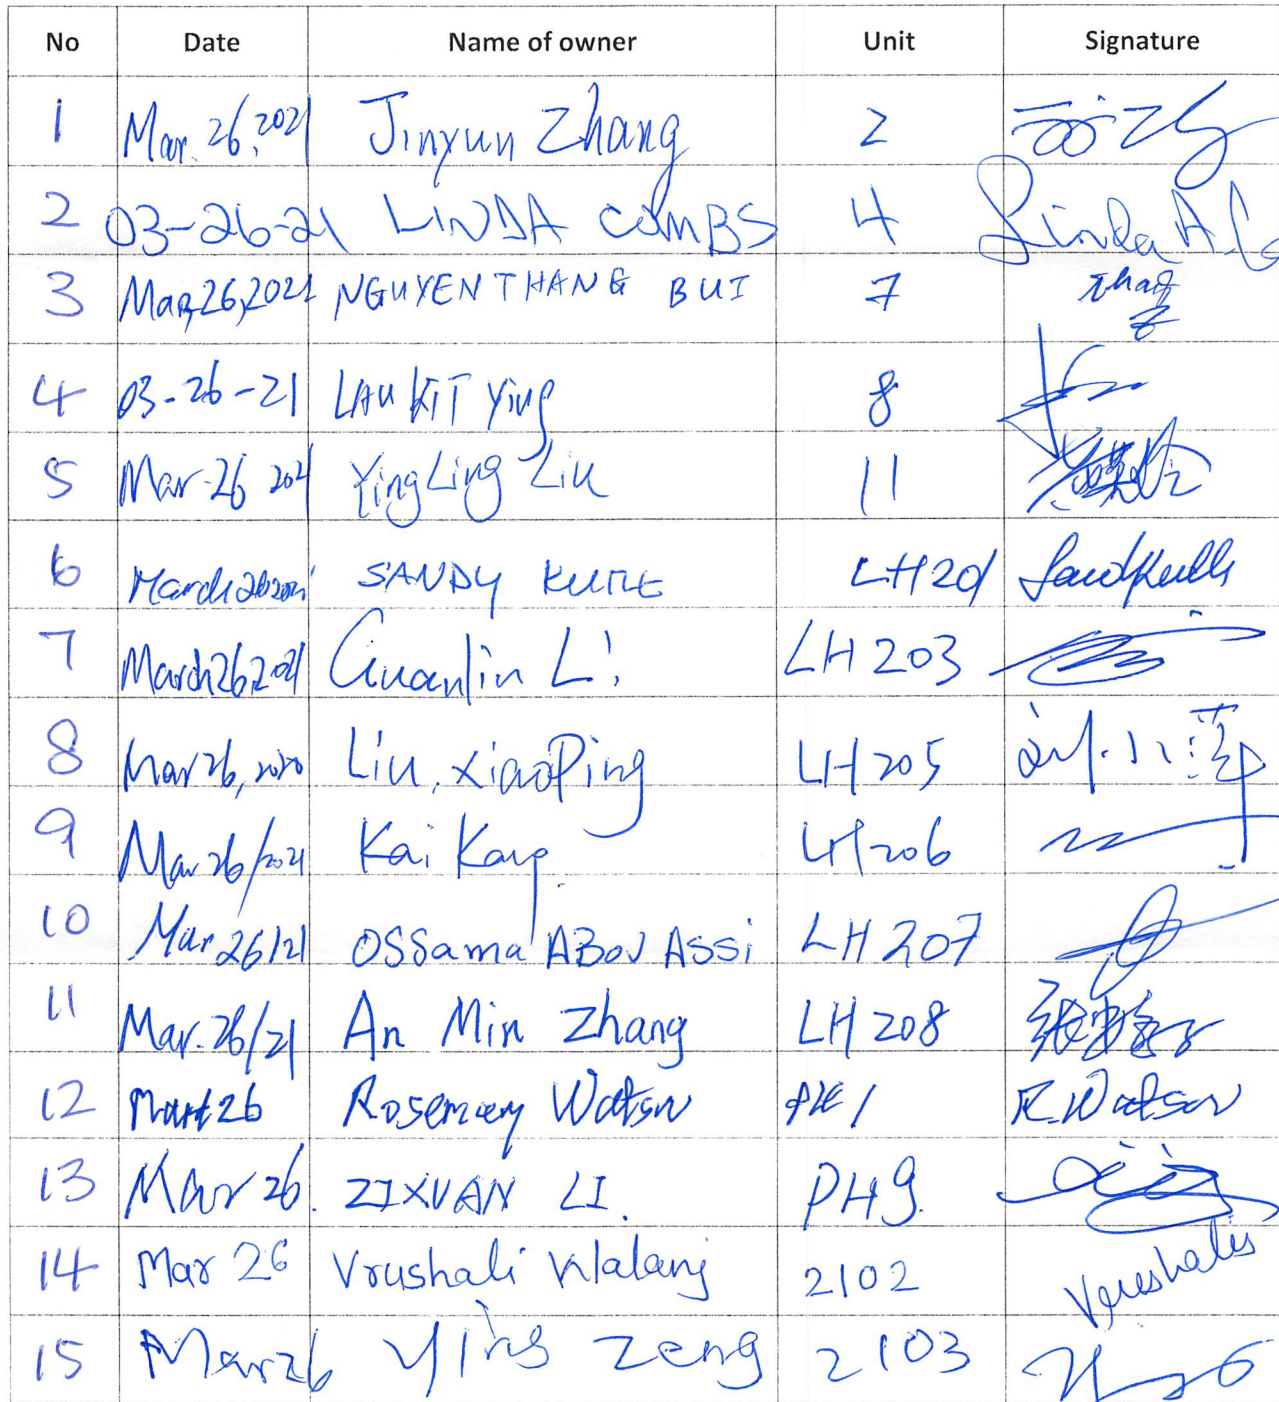 No Date Name of owner Unit Signature
1 Mar. 26, 2021 Jinyun Zhang 2
2 03-26-21 LINDA COMBS 4 Linda A Co
3 Mar, 26, 2021 NGUYEN THANG BUI 7 Thang
4 03-26-21 LAU KIT Ying 8
5 Mar-26 2021 YingLing Liu 11
6 March 26 2021 SANDY LH201
7 March 26, 2021 Guanlin Li LH 203
8 Mar 26, 2020 Liu, XiaoPing LH 205 刘小萍
9 Mar 26/2021 Kai Kang LH 206
10 Mar 26/21 OSSama ABOU ASSi LH 207
11 Mar. 26/21 An Min Zhang LH 208
12 Mar 26 Rosemary Watson PH 1 R. Watson
13 Mar 26. ZIXUAN LI. PH9.
14 Mar 26 Vrushali 2102
15 Mar 26 Ying Zeng 2103